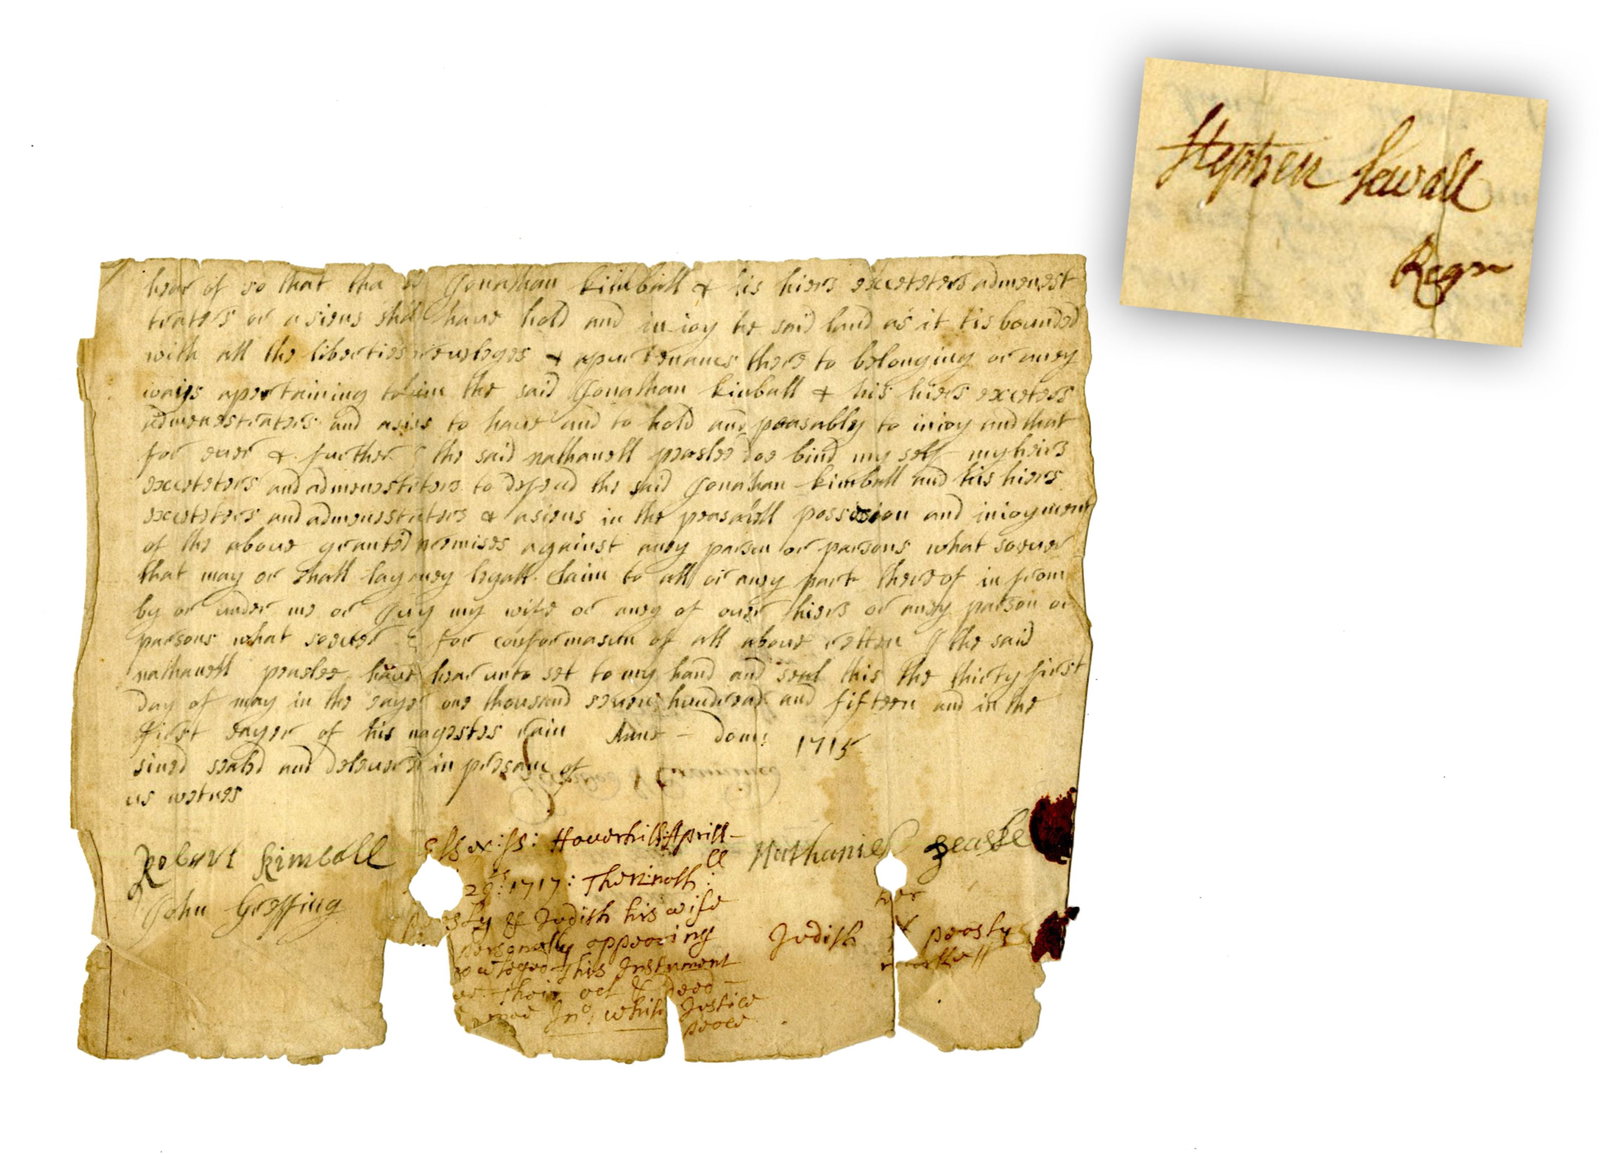 Stephen Sewall
Regr
hear of so that tha Jonathan kimball & his hiers exceteters admenest
traters or asiens shall have hold and injoy he said land as it tis bounded
with all the liberties preveleges & apurtenances there to belonging or aney
ways apertaining to him the said Jonathan kimball & his hiers exceters
admenestraters and asies to have and to hold and peasably to injoy and that
for ever & further I the said nathanell peaslee doe bind my self my heirs
exceteters and admenestraters to defend the said Jonathan kimball and his hiers
exceteters and admenestraters & asiens in the peasabll possesion and injoyment
of the above granted premises against aney parson or parsons what soever
that may or shall lay aney legall claim to all or aney part thereof in from
by or under me or Judy my wife or aney of ouer hiers or aney parson or
parsons what soever & for conformasun of all above retten I the said
nathanell peaslee have hear unto set to my hand and seal this the thirty first
day of may in the eayer one thousand seven hundread and fifteen and in the
first eayer of his magestes rain Anno - dom: 1715
sined sealed and delevered in presanc of
us wetnes
Robert Kimball
John Greffing
Essex: ss: Haverhill Aprill
29: 1717: Then nath:ll
Peasly & Judith his wife
personally appearing
acknowledged This Instrument
to be Their act & deed
before Jno: White Justice
peace
Nathaniel peasle
her
Judith X peasly
marke